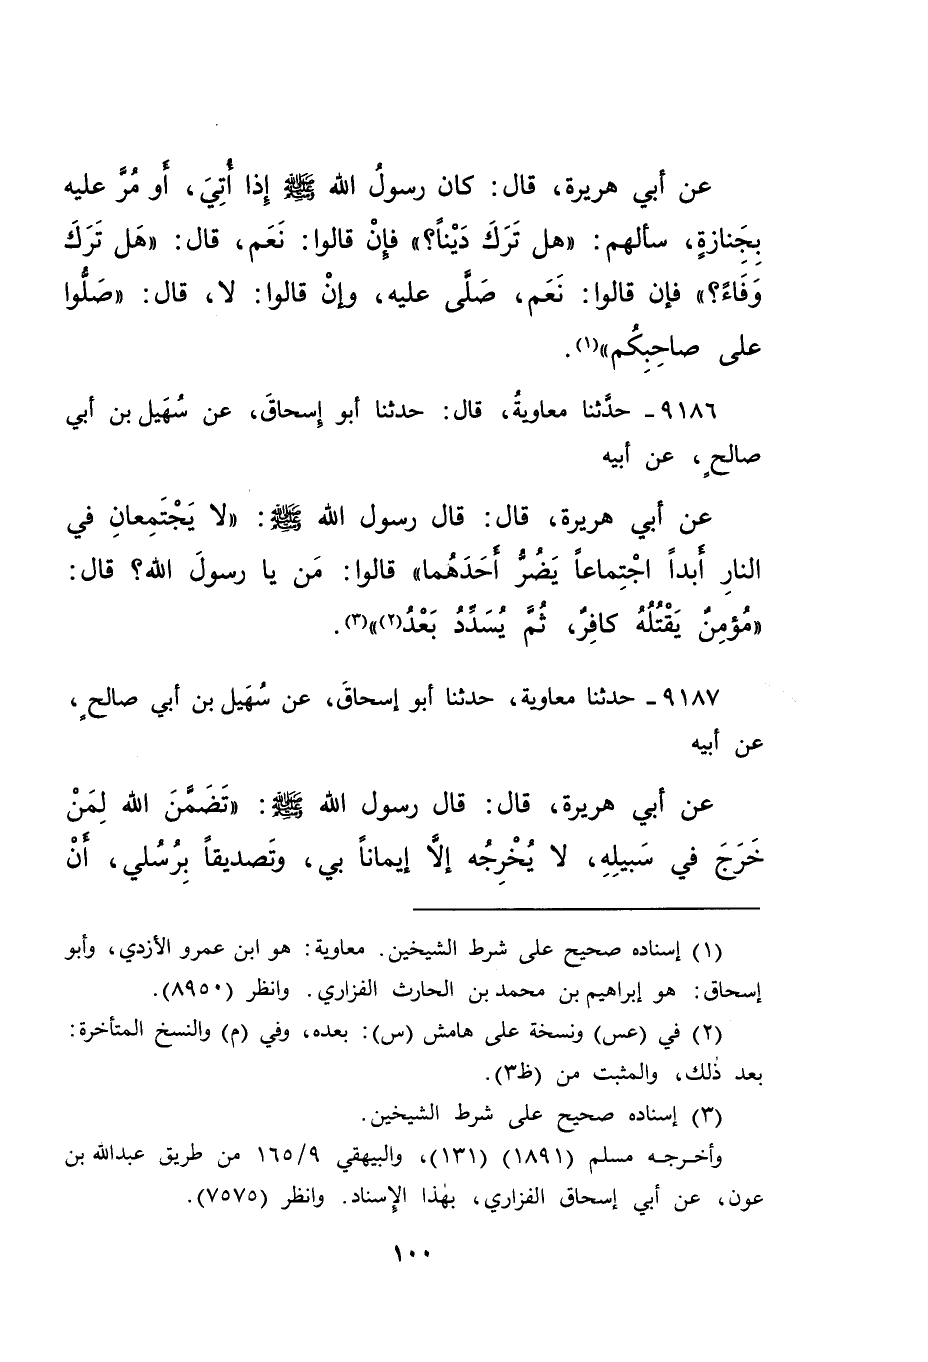 عن أبي هريرة، قال: كان رسولُ الله ﷺ إِذا أُتِيَ، أَو مُرَّ عليه
بِجَنازةٍ، سألهم: «هل تَرَكَ دَيْناً؟» فإِنْ قالوا: نَعَم، قال: «هَل تَرَكَ
وَفَاءً؟» فإن قالوا: نَعَم، صَلَّى عليه، وإنْ قالوا: لا، قال: «صَلُّوا
على صاحِبِكُم»(١).
٩١٨٦ ـ حدَّثنا معاويةُ، قال: حدثنا أبو إِسحاقَ، عن سُهَيل بن أبي
صالحٍ، عن أبيه
عن أبي هريرة، قال: قال رسول الله ﷺ: «لا يَجْتَمِعانِ في
النارِ أَبداً اجْتِماعاً يَضُرُّ أَحَدَهُما» قالوا: مَن يا رسولَ الله؟ قال:
«مُؤمِنٌ يَقْتُلُهُ كافِرٌ، ثُمَّ يُسَدِّدُ بَعْدُ(٢)»(٣).
٩١٨٧ ـ حدثنا معاوية، حدثنا أبو إسحاقَ، عن سُهَيل بن أبي صالحٍ،
عن أبيه
عن أبي هريرة، قال: قال رسول الله ﷺ: «تَضَمَّنَ الله لِمَنْ
خَرَجَ في سَبيلِهِ، لا يُخْرِجُه إلَّا إيماناً بي، وتَصديقاً بِرُسُلي، أَنْ
(١) إسناده صحيح على شرط الشيخين. معاوية: هو ابن عمرو الأزدي، وأبو
إسحاق: هو إبراهيم بن محمد بن الحارث الفزاري. وانظر (٨٩٥٠).
(٢) في (عس) ونسخة على هامش (س): بعده، وفي (م) والنسخ المتأخرة:
بعد ذٰلك، والمثبت من (ظ٣).
(٣) إسناده صحيح على شرط الشيخين.
وأخرجه مسلم (١٨٩١) (١٣١)، والبيهقي ١٦٥/٩ من طريق عبدالله بن
عون، عن أبي إسحاق الفزاري، بهٰذا الإِسناد. وانظر (٧٥٧٥).
١٠٠